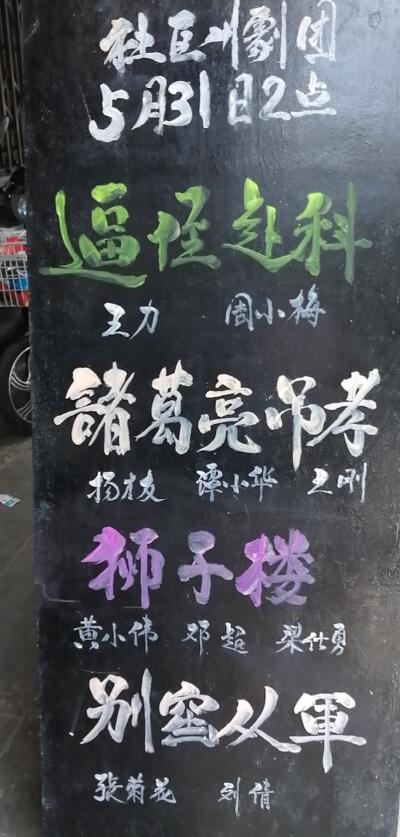 社区川劇团
5月31日2点
逼侄赴科
王力 周小梅
諸葛亮吊孝
杨枝 谭小华 王刚
狮子楼
黄小伟 邓超 梁仕勇
别窑从軍
張菊花 刘倩